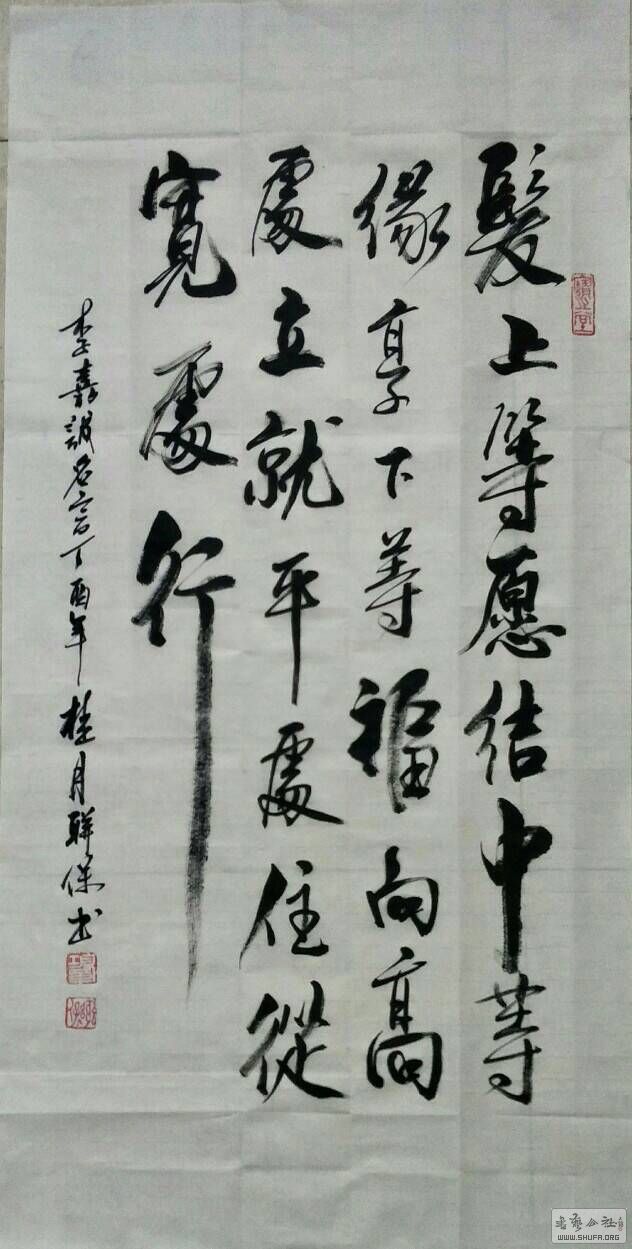 髮上等愿结中等
缘享下等福向高
處立就平處住從
寬處行
李嘉誠名言丁酉年桂月联保书
書藝公社
WWW.SHUFA.ORG